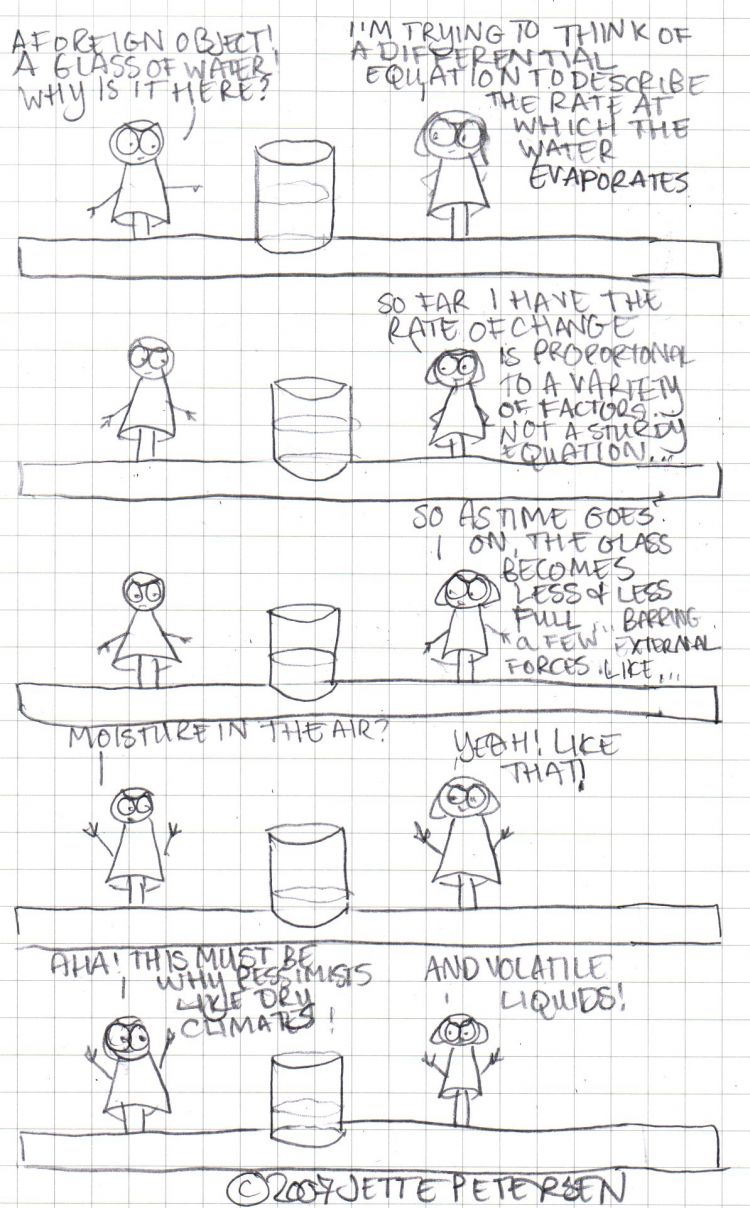 A FOREIGN OBJECT!
A GLASS OF WATER!
WHY IS IT HERE?
I'M TRYING TO THINK OF
A DIFFERENTIAL
EQUATION TO DESCRIBE
THE RATE AT
WHICH THE
WATER
EVAPORATES
SO FAR I HAVE THE
RATE OF CHANGE
IS PROPORTIONAL
TO A VARIETY
OF FACTORS...
NOT A STURDY
EQUATION...
SO AS TIME GOES
ON, THE GLASS
BECOMES
LESS & LESS
FULL... BARRING
a FEW EXTERNAL
FORCES. LIKE...
MOISTURE IN THE AIR?
YEAH! LIKE
THAT!
AHA! THIS MUST BE
WHY PESSIMISTS
LIKE DRY
CLIMATES!
AND VOLATILE
LIQUIDS!
©2007 JETTE PETERSEN